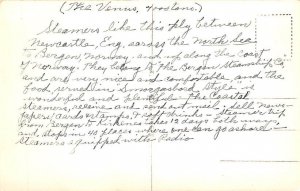 (The Venus, 4000 tons.)
Steamers like this ply between
Newcastle, Eng. across the North Sea
to Bergen, Norway, and up along the Coast
of Norway. They belong to The Bergen Steamship Co.
and are very nice and comfortable, and the
food served in Smorgasbord Style is
wonderful and plentiful. The Coastal
steamers, receive and send out mail, sell news-
papers, cards & stamps, & soft drinks - Steamer trip
from Bergen to Kirkenes takes 12 days both ways
and stops in 40 places where one can go ashore -
steamers equipped with Radio